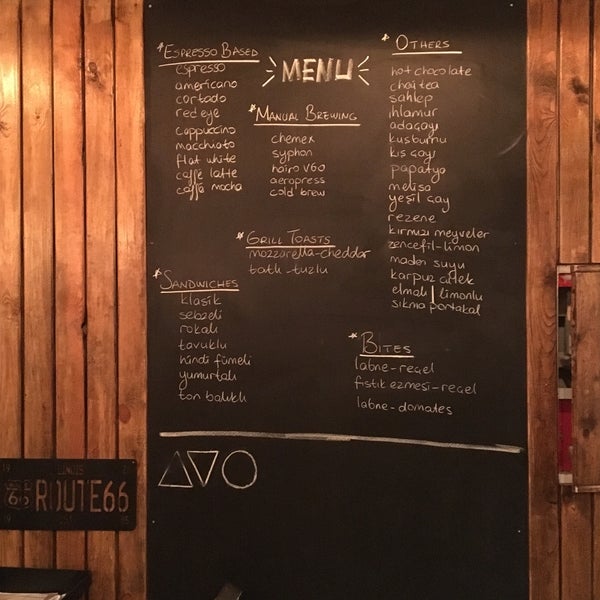 * ESPRESSO BASED
espresso
americano
cortado
red eye
cappuccino
macchiato
flat white
caffé latte
caffé mocha
MENU
* MANUAL BREWING
chemex
syphon
hairo v60
aeropress
cold brew
* GRILL TOASTS
mozzarella-cheddar
tatlı-tuzlu
* SANDWICHES
klasik
sebzeli
rokalı
tavuklu
hindi fümeli
yumurtalı
ton balıklı
* OTHERS
hot chocolate
chai tea
sahlep
ıhlamur
adaçayı
kuşburnu
kış çayı
papatya
melisa
yeşil çay
rezene
kırmızı meyveler
zencefil-limon
maden suyu
karpuz çilek
elmalı | limonlu
sıkma portakal
* BITES
labne-reçel
fıstık ezmesi-reçel
labne-domates
ILLINOIS
66 ROUTE 66